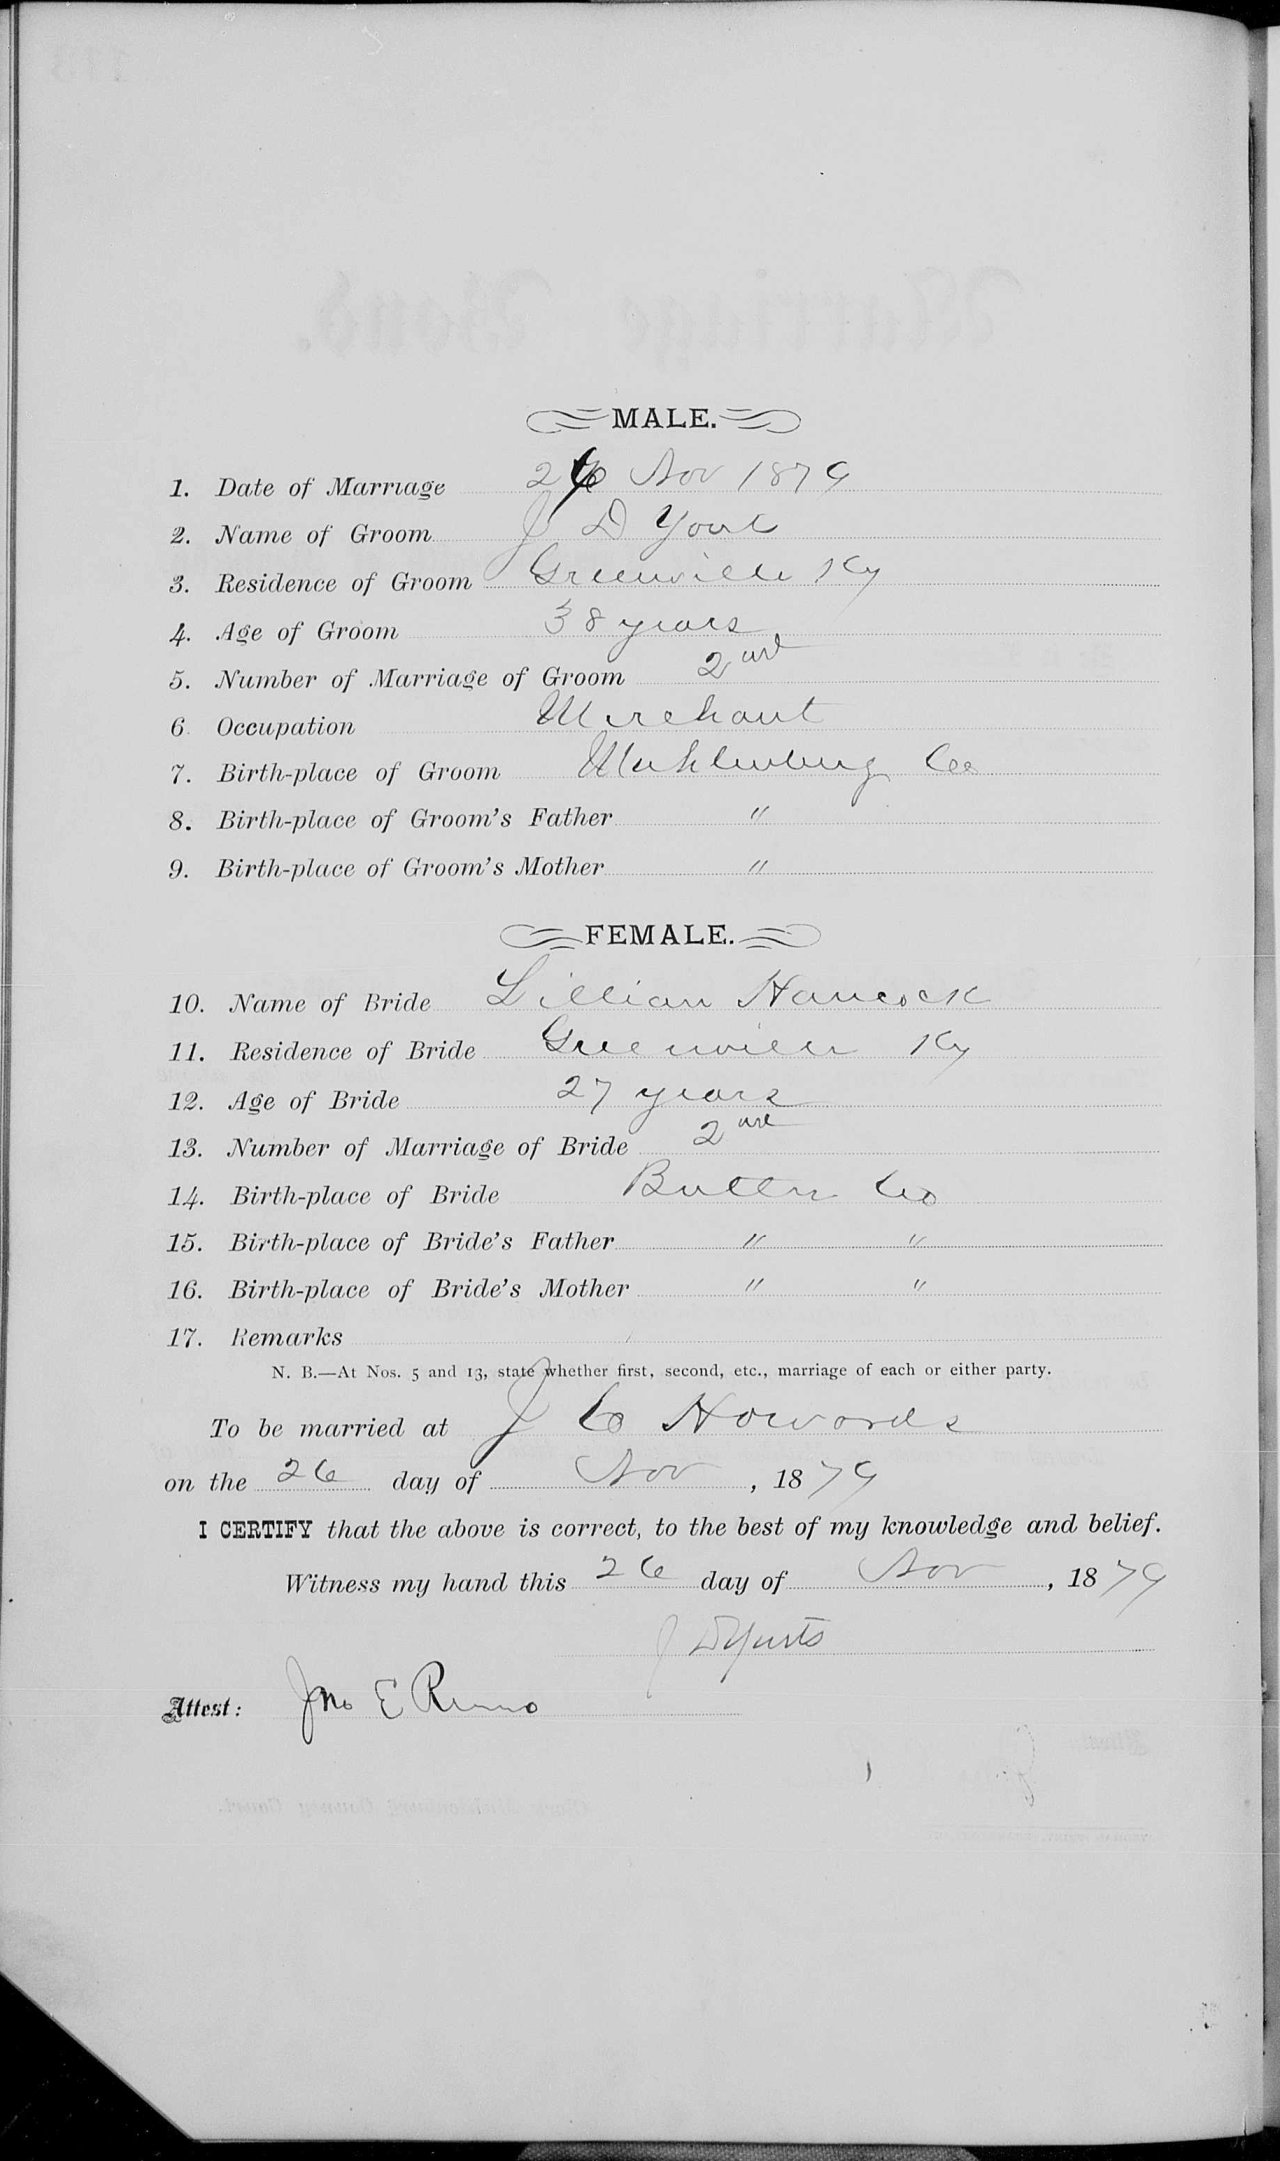 MALE.
1. Date of Marriage 26 Nov 1879
2. Name of Groom J D Yout
3. Residence of Groom Greenville Ky
4. Age of Groom 38 years
5. Number of Marriage of Groom 2nd
6. Occupation Merchant
7. Birth-place of Groom Muhlenburg Co
8. Birth-place of Groom's Father "
9. Birth-place of Groom's Mother "
FEMALE.
10. Name of Bride Lillian Hancock
11. Residence of Bride Greenville Ky
12. Age of Bride 27 years
13. Number of Marriage of Bride 2nd
14. Birth-place of Bride Butler Co
15. Birth-place of Bride's Father " "
16. Birth-place of Bride's Mother " "
17. Remarks
N. B.—At Nos. 5 and 13, state whether first, second, etc., marriage of each or either party.
To be married at J C Howards
on the 26 day of Nov, 1879
I CERTIFY that the above is correct, to the best of my knowledge and belief.
Witness my hand this 26 day of Nov, 1879
J D Yonts
Attest: Jno E Reno